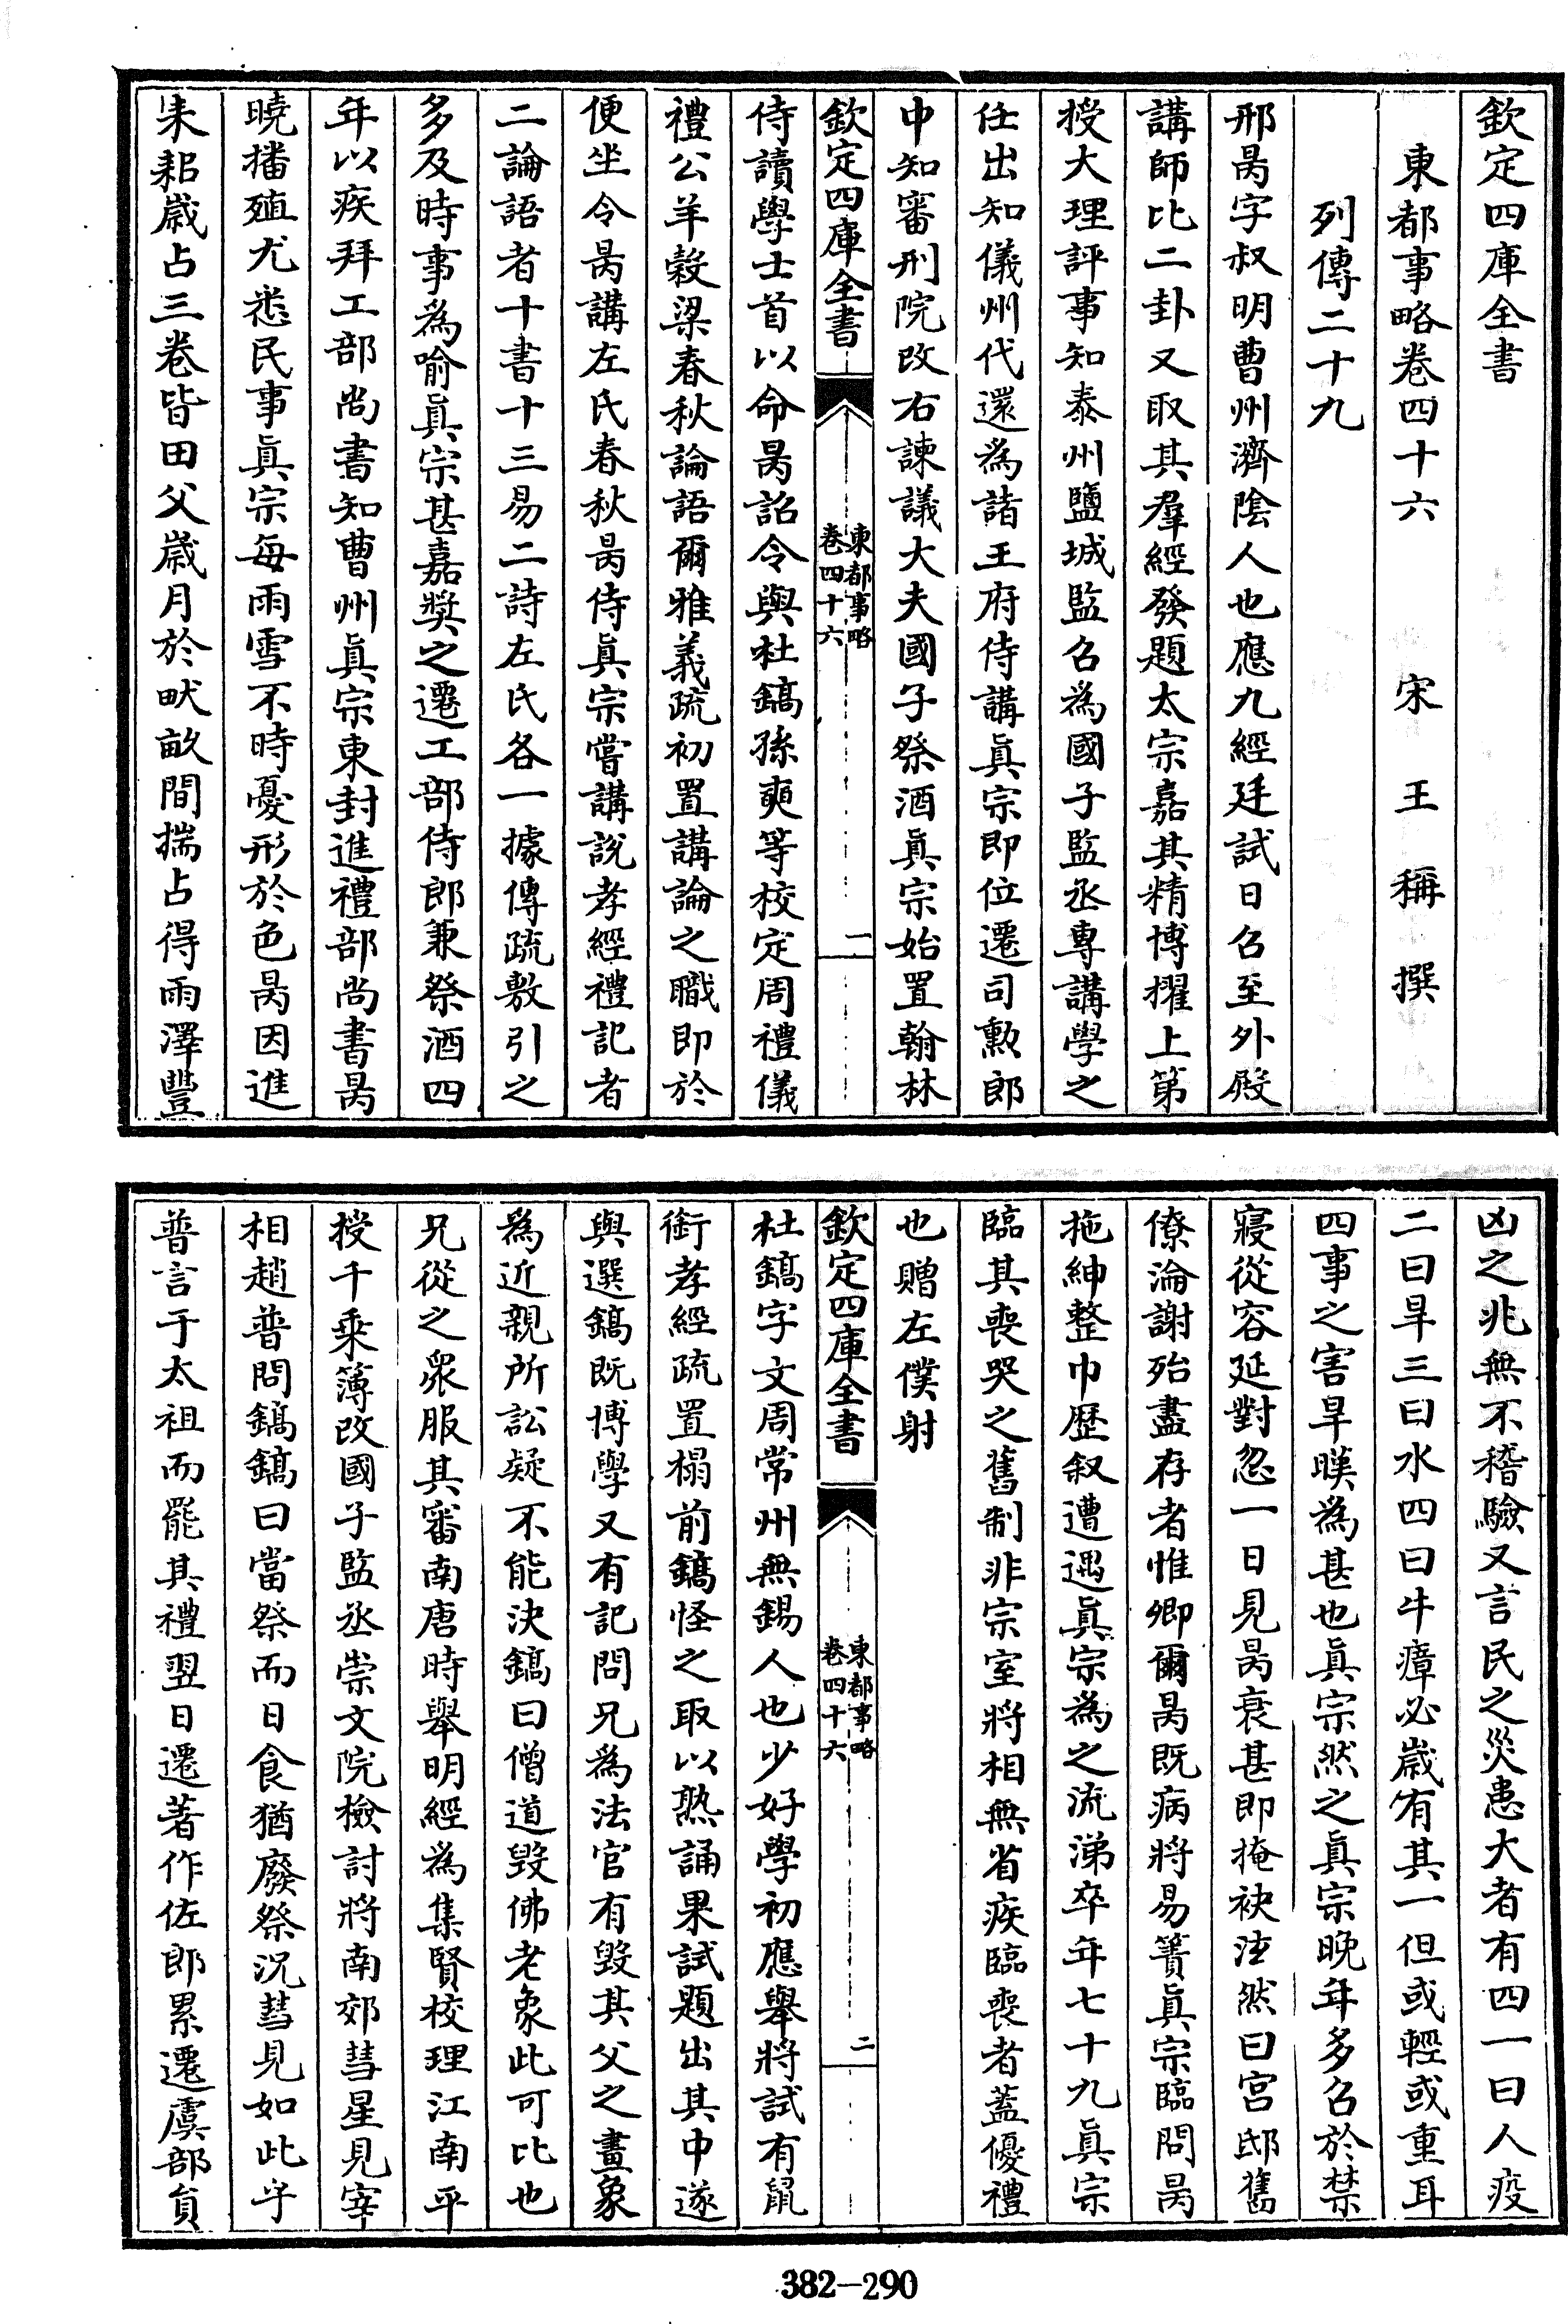 欽定四庫全書
東都事略卷四十六　宋　王　稱　撰
列傳二十九
邢昺字叔明曹州濟隂人也應九經廷試日召至外殿
講師比二卦又取其羣經發題太宗嘉其精博擢上第
授大理評事知泰州鹽城監召為國子監丞專講學之
任出知儀州代還為諸王府侍講眞宗即位遷司勲郎
中知審刑院改右諫議大夫國子祭酒眞宗始置翰林
欽定四庫全書
東都事略
卷四十六
一
侍讀學士首以命昺詔令與杜鎬孫奭等校定周禮儀
禮公羊穀梁春秋論語爾雅義疏初置講論之職即於
便坐令昺講左氏春秋昺侍眞宗嘗講說孝經禮記者
二論語者十書十三易二詩左氏各一據傳疏敷引之
多及時事為喻眞宗甚嘉獎之遷工部侍郎兼祭酒四
年以疾拜工部尚書知曹州眞宗東封進禮部尚書昺
曉播殖尤悉民事眞宗每雨雪不時憂形於色昺因進
耒耜歲占三卷皆田父歲月於畎畝間揣占得雨澤豐
凶之兆無不稽驗又言民之災患大者有四一曰人疫
二曰旱三曰水四曰牛瘴必歲有其一但或輕或重耳
四事之害旱暵為甚也眞宗然之眞宗晚年多召於禁
寢從容延對忽一日見昺衰甚即掩袂泫然曰宫邸舊
僚淪謝殆盡存者惟卿爾昺既病將易簀眞宗臨問昺
拖紳整巾歴叙遭遇眞宗為之流涕卒年七十九眞宗
臨其喪哭之舊制非宗室將相無省疾臨喪者蓋優禮
也贈左僕射
欽定四庫全書
東都事略
卷四十六
二
杜鎬字文周常州無錫人也少好學初應舉將試有鼠
銜孝經疏置榻前鎬怪之取以熟誦果試題出其中遂
與選鎬既博學又有記問兄為法官有毀其父之畫象
為近親所訟疑不能決鎬曰僧道毀佛老象此可比也
兄從之衆服其審南唐時舉明經為集賢校理江南平
授千乘簿改國子監丞崇文院檢討將南郊彗星見宰
相趙普問鎬鎬曰當祭而日食猶廢祭況彗見如此乎
普言于太祖而罷其禮翌日遷著作佐郎累遷虞部員
382-290